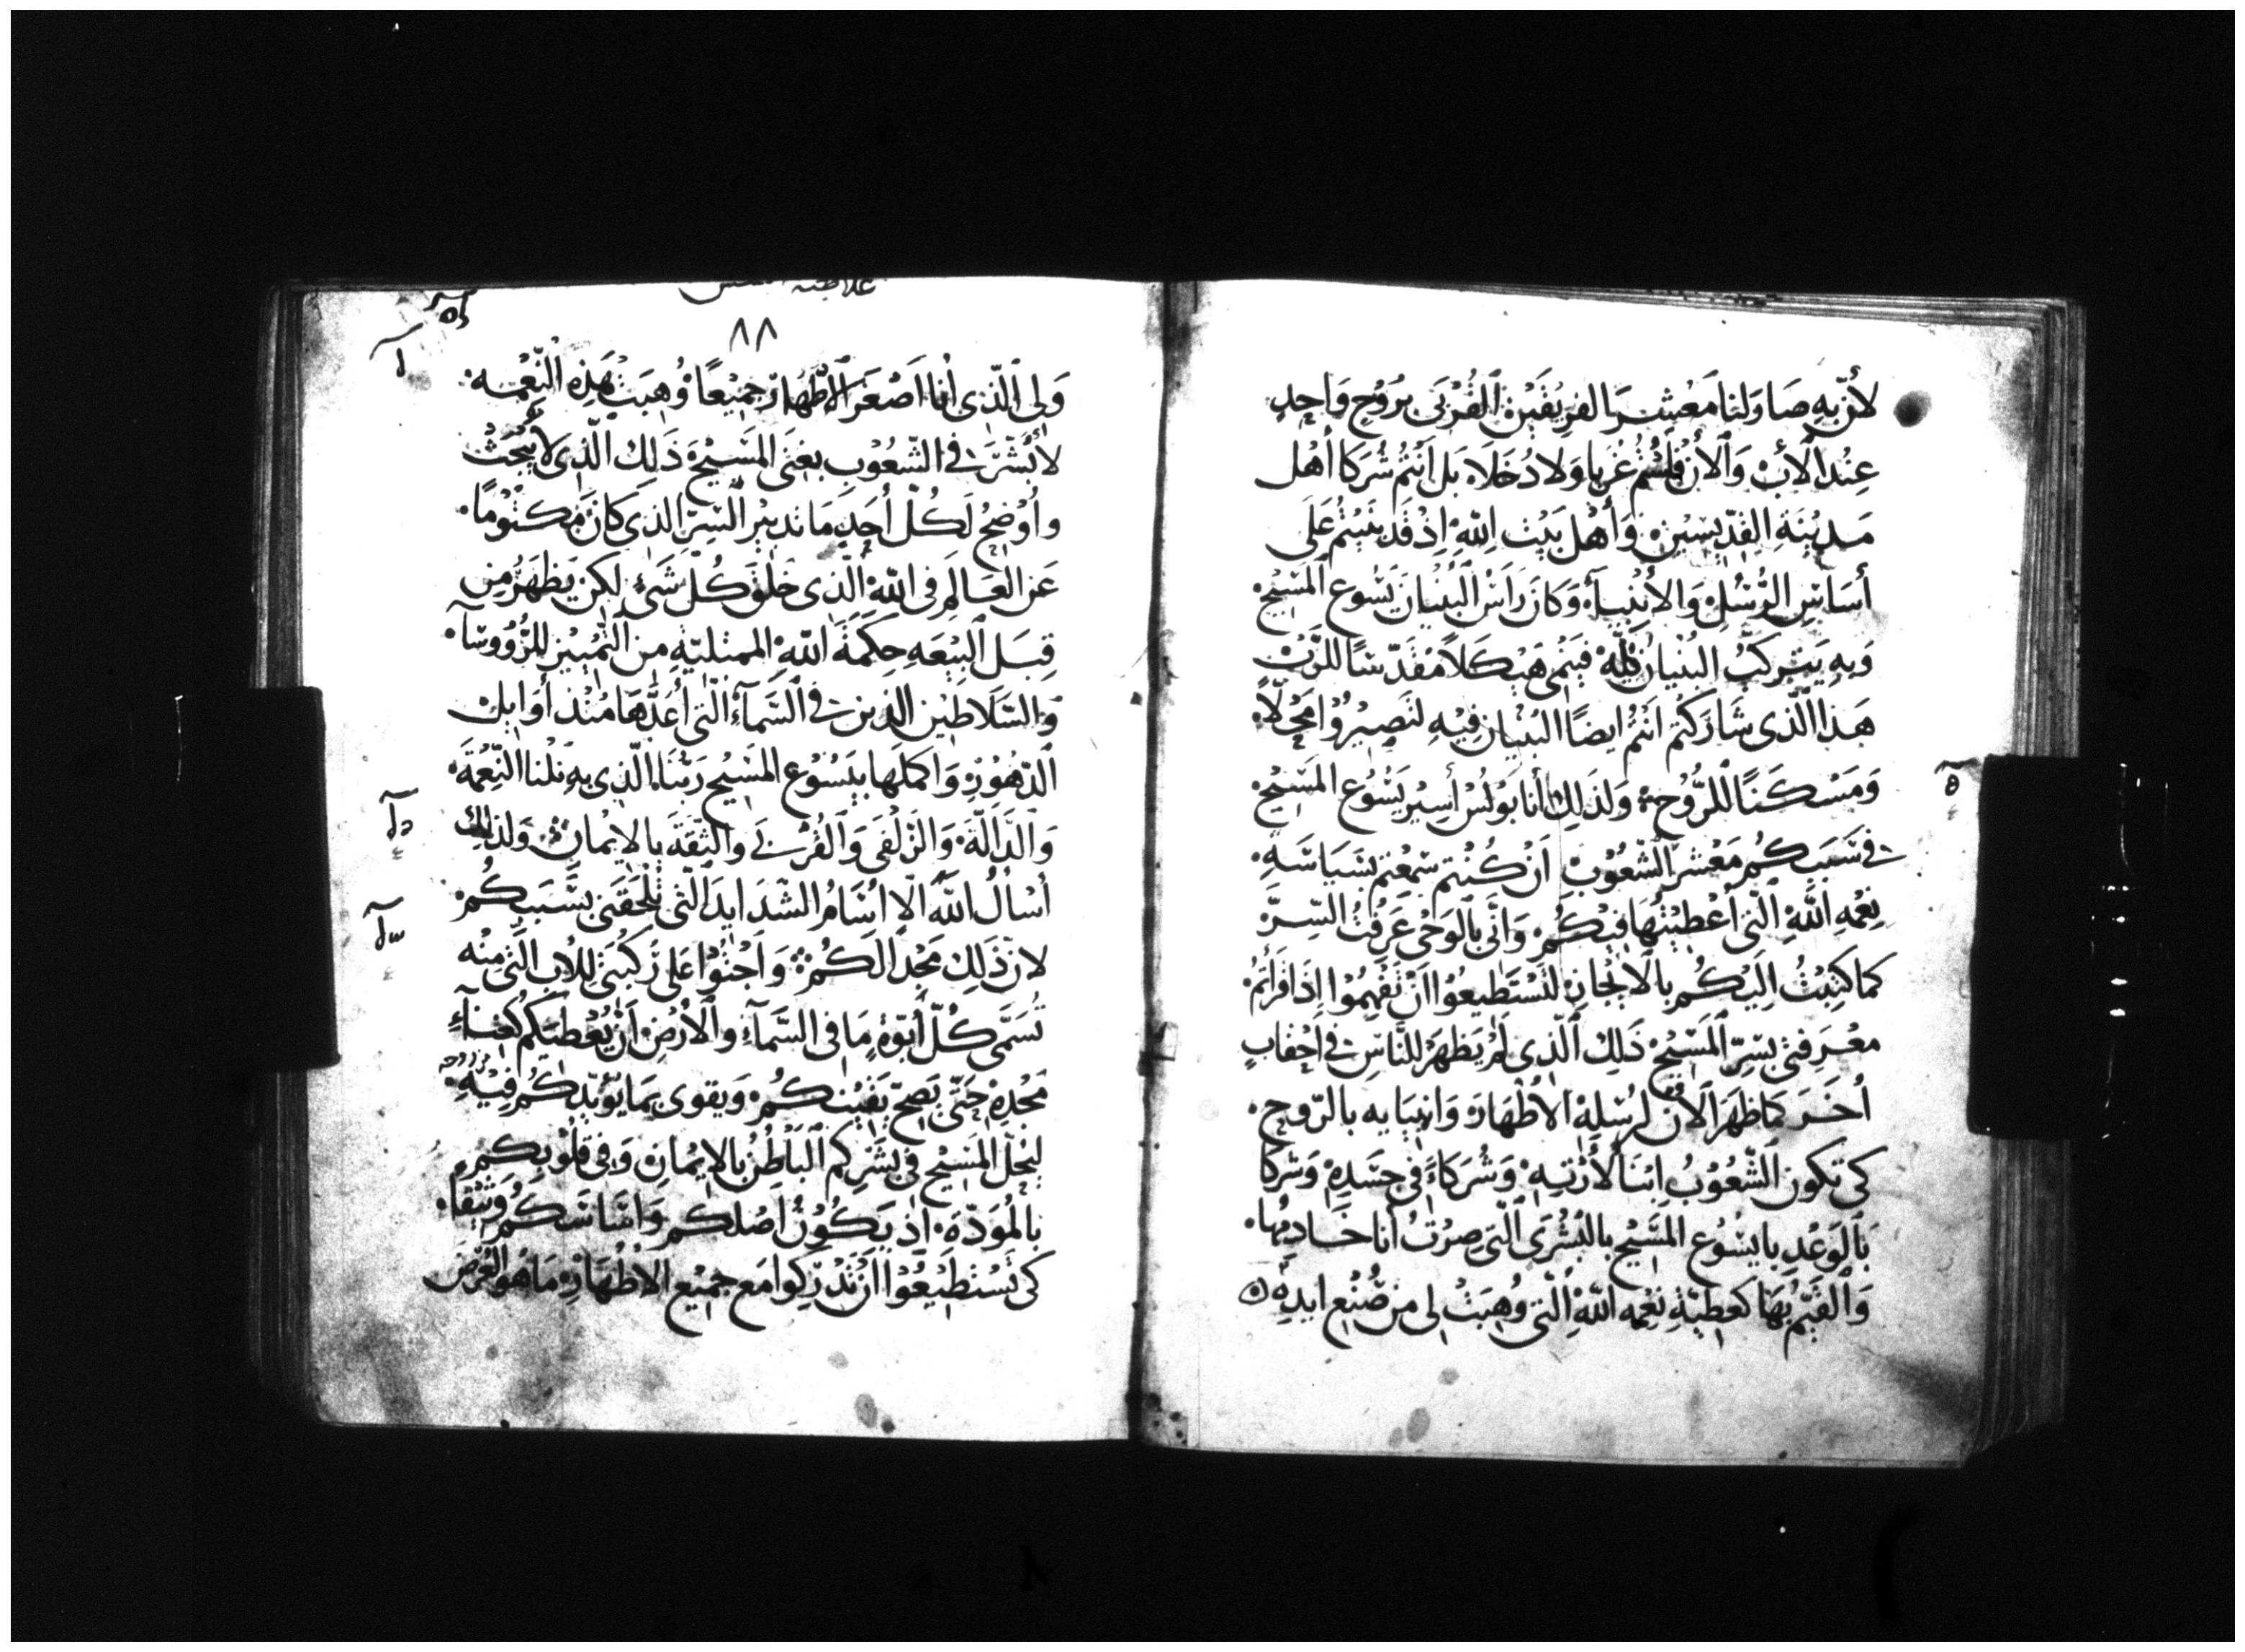 لأنّ به صَاوَلنا مَعْشر الفريقَيْن القُرْبَى برُوْحٍ وَاحِدٍ
عِنْد الأبْ وَالأنْ فلَسْتُم غُرَبا وَلا دُخَلاء بَل أنتُم شُرَكا أهْل
مَدِيْنَةِ القدّيسِيْن وَأهْل بَيْت اللهِ اِذْ قَد بنيتُم عَلَى
أسَاسِ الرُّسُل وَالأنبيَآء وَكانَ رَاسَ البُنيان يَسُوع المسِيْح
وَبِهِ يَتركبُ البُنيان كلّه فينمى هَيْكلاً مُقَدّسًا للرَّبْ
هَذا الّذى شارَكتم انتُم ايضًا البُنيان فِيْهِ لتَصِيْرُوْا مَحِلّاً
وَمَسْكَنًا للرُّوْح وَلذلِك أنا بَوْلسْ أسِيْر يَسُوْع المَسِيْح
فى سَبَبكُم مَعْشر الشعُوْب اَن كُنْتم سَمعْتم بسَيَاسَةِ
نِعْمهِ اللهِ التى أعْطِيْتُهَا فيْكُم وَانّى بالوَحْى عَرفتُ السِّرَّ
كما كتبْتُ اِليْكُم بالايْجَاز لتَسْتَطيعُوْا اَنْ تَفْهمُوْا اِذا قرَأتمُ
مَعْرَفتى بسّرّ المسِيْح ذَلِك الّذى لَمْ يَظهَرْ للنَّاس فى احْقابٍ
اُخَرَ كمَا ظهَرَ الآنْ لرُسْلِهْ الأطْهَارْ وَانبيَايه بالرّوح
كى تكون الشُّعُوْبُ اِبْنَا لأرْثهِ وَشُرَكاءً فى جسَدهِ وَشركا
بَالوَعْدِ بايسُوع المسِيْح بالبُشْرَى الّتى صِرْتُ أنا خَادِمُها
وَالقيّم بهَا كعَطِيّةِ نعمه اللهِ التى وُهِبَتْ لى من صُنْع ايدهِ
٨٨
وَلى الّذى أنا اَصْغَر الاطهار جميْعًا وُهِبَتْ هَذِهِ النّعْمه
لأبُشّرَ فى الشّعُوْب بغنَى المَسِيْح ذَلِك الّذى لا يُبْحَثْ
واُوْضحُ لَكُلّ أحَدٍ مَا تدبيْر السِّرّ الذى كانَ مَكتُوْمًا
عَن العَالِم فى اللهْ الّذى خلَقَ كُلّ شَىْءٍ لِكى يَظهَرُ من
قِبَل البِيْعَهِ حِكمَةَ اللهِ الممتليّةِ من التّمْييْز للرُّؤوسَآ
وَالسّلاطِيْن الذين فى السَّمآء التى أعَدّهَا مُنْذ أوَايل
الدّهُوْر وَاكملَها بيَسُوْع المسِيْح رَبّنا الّذى به نلْنا النّعْمَة
وَالدَّالّة وَالزّلْفَى وَالقُرْبَى وَالثِّقَةَ بالايْمان وَلذلك
أسْالُ اللهَ اَلا اسَامُ الشدَايدَ الّتى تلحَقنى بسَبَبكُم
لانّ ذَلِك مَجْدٍ الَكُم وَاَجْثُوْا عَلى رُكبتى للأبِ الّتى منْه
تُسَمَّى كُلّ أبُوّةٍ مَا فى السَّمآء والأرْض اَنْ يُعْطيَكم كغناءِ
مَجْدِهِ حَتّى يَصِحّ يَقيْنكُم وَيقوى بمَا يُؤيّدكُم فيْهِ بروحه
ليَحلّ المَسِيْح فى بَشَركم البَاطِنْ بالايْمان وَفى قلُوْبكُم
بالمُوَدّة اِذ يَكُوْنُ اَصْلكُم وَاسَاسَكُم وَثيْقا
كى تَسْتطَيعُوْا اَنْ تدْركوا مَع جميْع الأطْهَار مَا هُو العُرْض